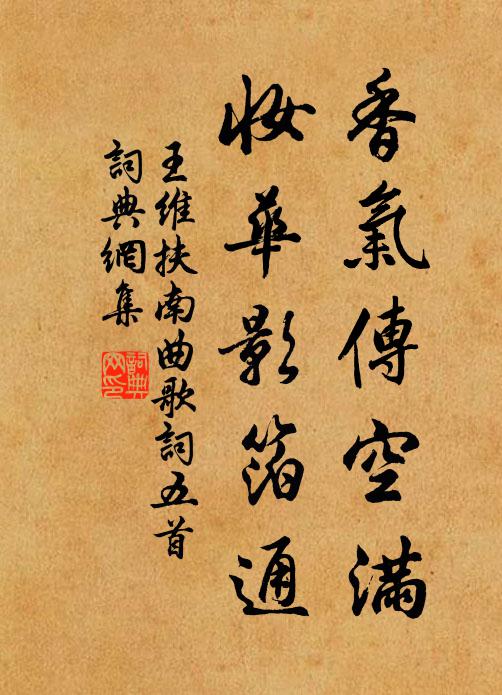 香氣傳空滿
妝華影箔通
王維扶南曲歌詞五首
詞典網集
詞典网印